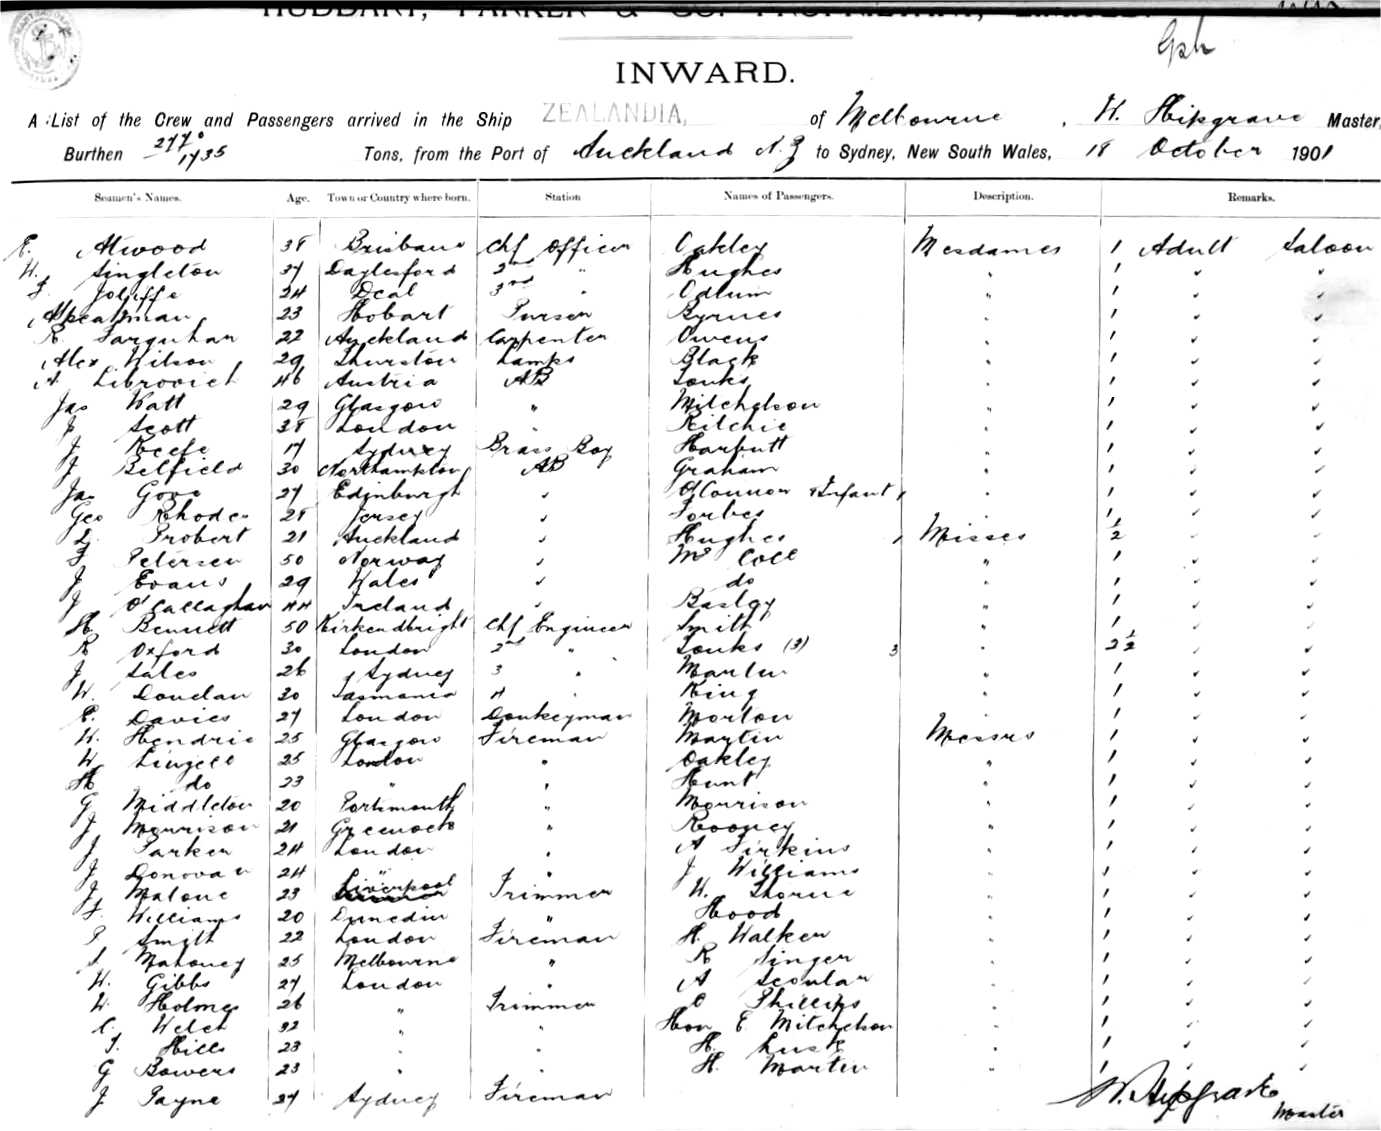 HUDDART, PARKER & CO. PROPRIETARY, LIMITED.
Gph
INWARD.
A List of the Crew and Passengers arrived in the Ship ZEALANDIA, of Melbourne, W. Hipgrave Master,
Burthen 2771 1735 Tons, from the Port of Auckland N.Z to Sydney, New South Wales, 18 October 1901
Seamen's Names. Age. Town or Country where born. Station Names of Passengers. Description. Remarks.
E. Atwood 38 Brisbane Chf Officer Oakley Mesdames 1 Adult Saloon
W. Singleton 37 Daylesford 2nd " Hughes " 1 " "
F. Joliffe 24 Deal 3rd " Odlum " 1 " "
Spearman 23 Hobart Purser Byrnes " 1 " "
R Farquhar 22 Auckland Carpenter Owens " 1 " "
Alex Wilson 29 Thurston Lamps Black " 1 " "
A Librovich 46 Austria AB Jonks " 1 " "
Jas Watt 29 Glasgow " Mitchelson " 1 " "
J Scott 38 London " Ritchie " 1 " "
J Keefe 17 Sydney Brass Boy Harbutt " 1 " "
J Belfield 30 Northampton AB Graham " 1 " "
Jas Gove 27 Edinburgh " O'Connor & Infant 1 " 1 " "
Geo Rhodes 28 Jersey " Forbes " 1 " "
L. Probert 21 Auckland " Hughes 1 Misses 1/2 " "
F Petersen 50 Norway " Mc Coll " 1 " "
J Evans 29 Wales " do " 1 " "
J O'Callaghan 44 Ireland " Basley " 1 " "
H Bennett 50 Kirkendbright Chf Engineer Smith " 1 " "
R Oxford 30 London 2nd " Jonks (3) 3 " 2 1/2 " "
J Sales 26 Sydney 3 " Martin " 1 " "
W. Doudan 30 Tasmania 4 " King " 1 " "
E. Davies 27 London Donkeyman Morton " 1 " "
W. Hendrie 25 Glasgow Fireman Martin Messrs 1 " "
W Lingell 25 London " Oakley " 1 " "
H do 23 " " Hunt " 1 " "
G Middleton 20 Portsmouth " Morrison " 1 " "
J Morrison 21 Greenock " Rooney " 1 " "
J Parker 24 London " A Firkins " 1 " "
J Donovan 24 " " J Williams " 1 " "
J Malone 23 Liverpool Trimmer W. Thorne " 1 " "
F. Williams 20 Dunedin " Hood " 1 " "
P Smith 22 London Fireman H. Walker " 1 " "
S Mahoney 25 Melbourne " R Singer " 1 " "
W. Gibbs 27 London " A Scoular " 1 " "
W Holmes 26 " Trimmer C Phillips " 1 " "
C. Welch 32 " " Hon E Mitchelson " 1 " "
T. Hills 23 " " H. Lusk " 1 " "
G Bowers 23 " " H. Martin " 1 " "
J Payne 27 Sydney Fireman
W. Hipgrave
Master